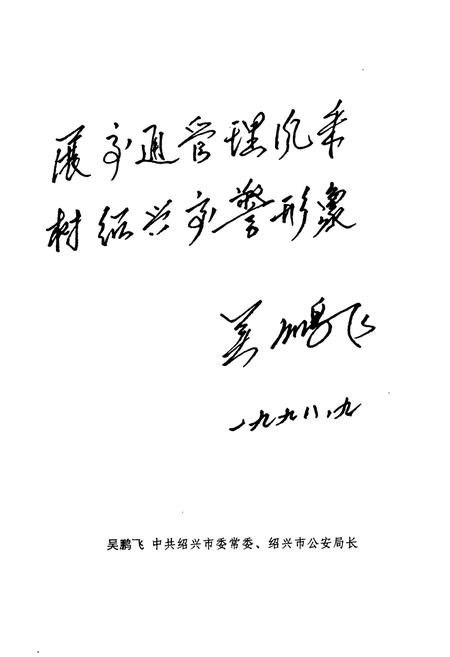 展交通管理风采
树绍兴交警形象
吴鹏飞
一九九八.九
吴鹏飞 中共绍兴市委常委、绍兴市公安局长